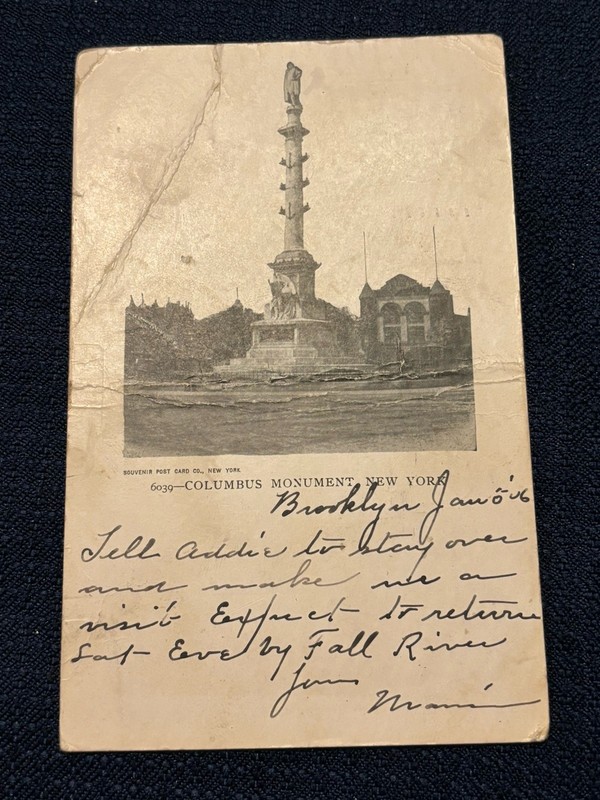 SOUVENIR POST CARD CO., NEW YORK
6039—COLUMBUS MONUMENT, NEW YORK
Brooklyn Jan '06
Tell Addie to stay over
and make me a
visit Expect to return
Sat Eve by Fall River